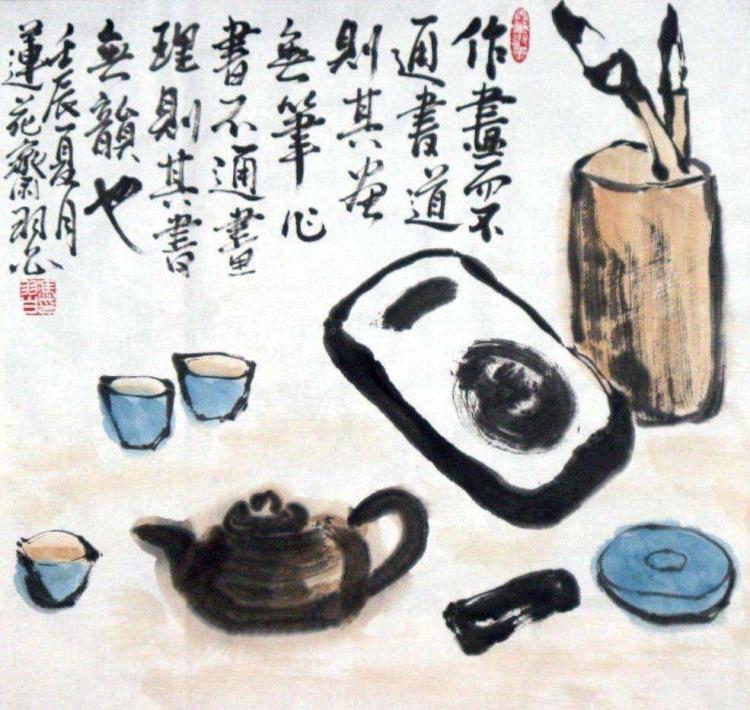 作畫而不
通書道
則其画
無筆作
書不通畫
理則其書
無韻也
壬辰夏月
蓮花齋羽公